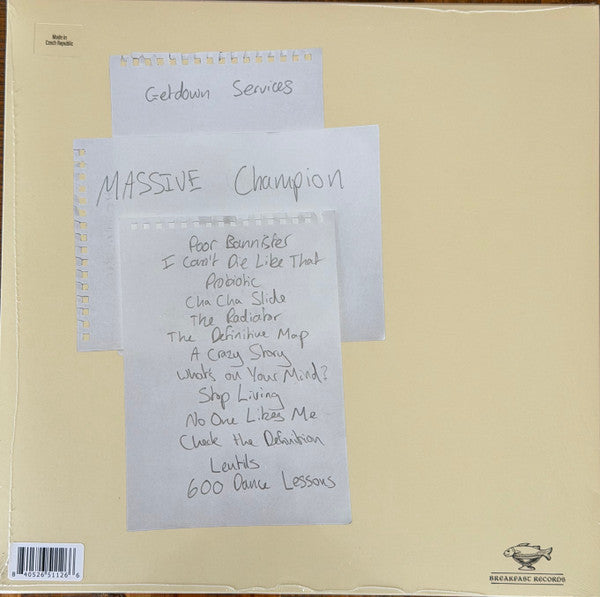 Made in
Czech Republic
Getdown Services
MASSIVE Champion
Poor Bannister
I Can't Die Like That
Probiotic
Cha Cha Slide
The Radiator
The Definitive Map
A Crazy Story
What's on Your Mind?
Stop Living
No One Likes Me
Check the Definition
Lentils
600 Dance Lessons
8 40526 51126 6
BREAKFAST RECORDS